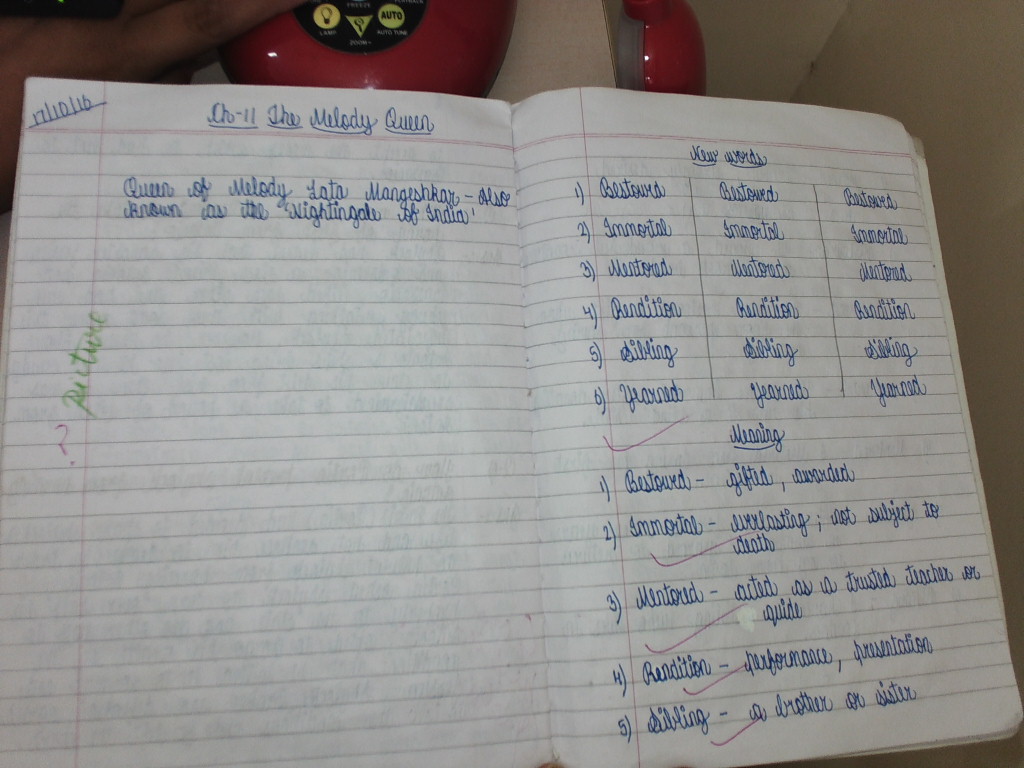 FREEZE
LAMP
AUTO
ZOOM-
AUTO TUNE
17/10/16
Ch-11 The Melody Queen
Queen of Melody Lata Mangeshkar - Also
known as the 'Nightingale of India'
picture
?
New words
1) Bestowed Bestowed Bestowed
2) Immortal Immortal Immortal
3) Mentored Mentored Mentored
4) Rendition Rendition Rendition
5) Sibling Sibling Sibling
6) Yearned Yearned Yearned
Meaning
1) Bestowed - gifted, awarded
2) Immortal - everlasting; not subject to
death
3) Mentored - acted as a trusted teacher or
guide
4) Rendition - performance, presentation
5) Sibling - a brother or sister